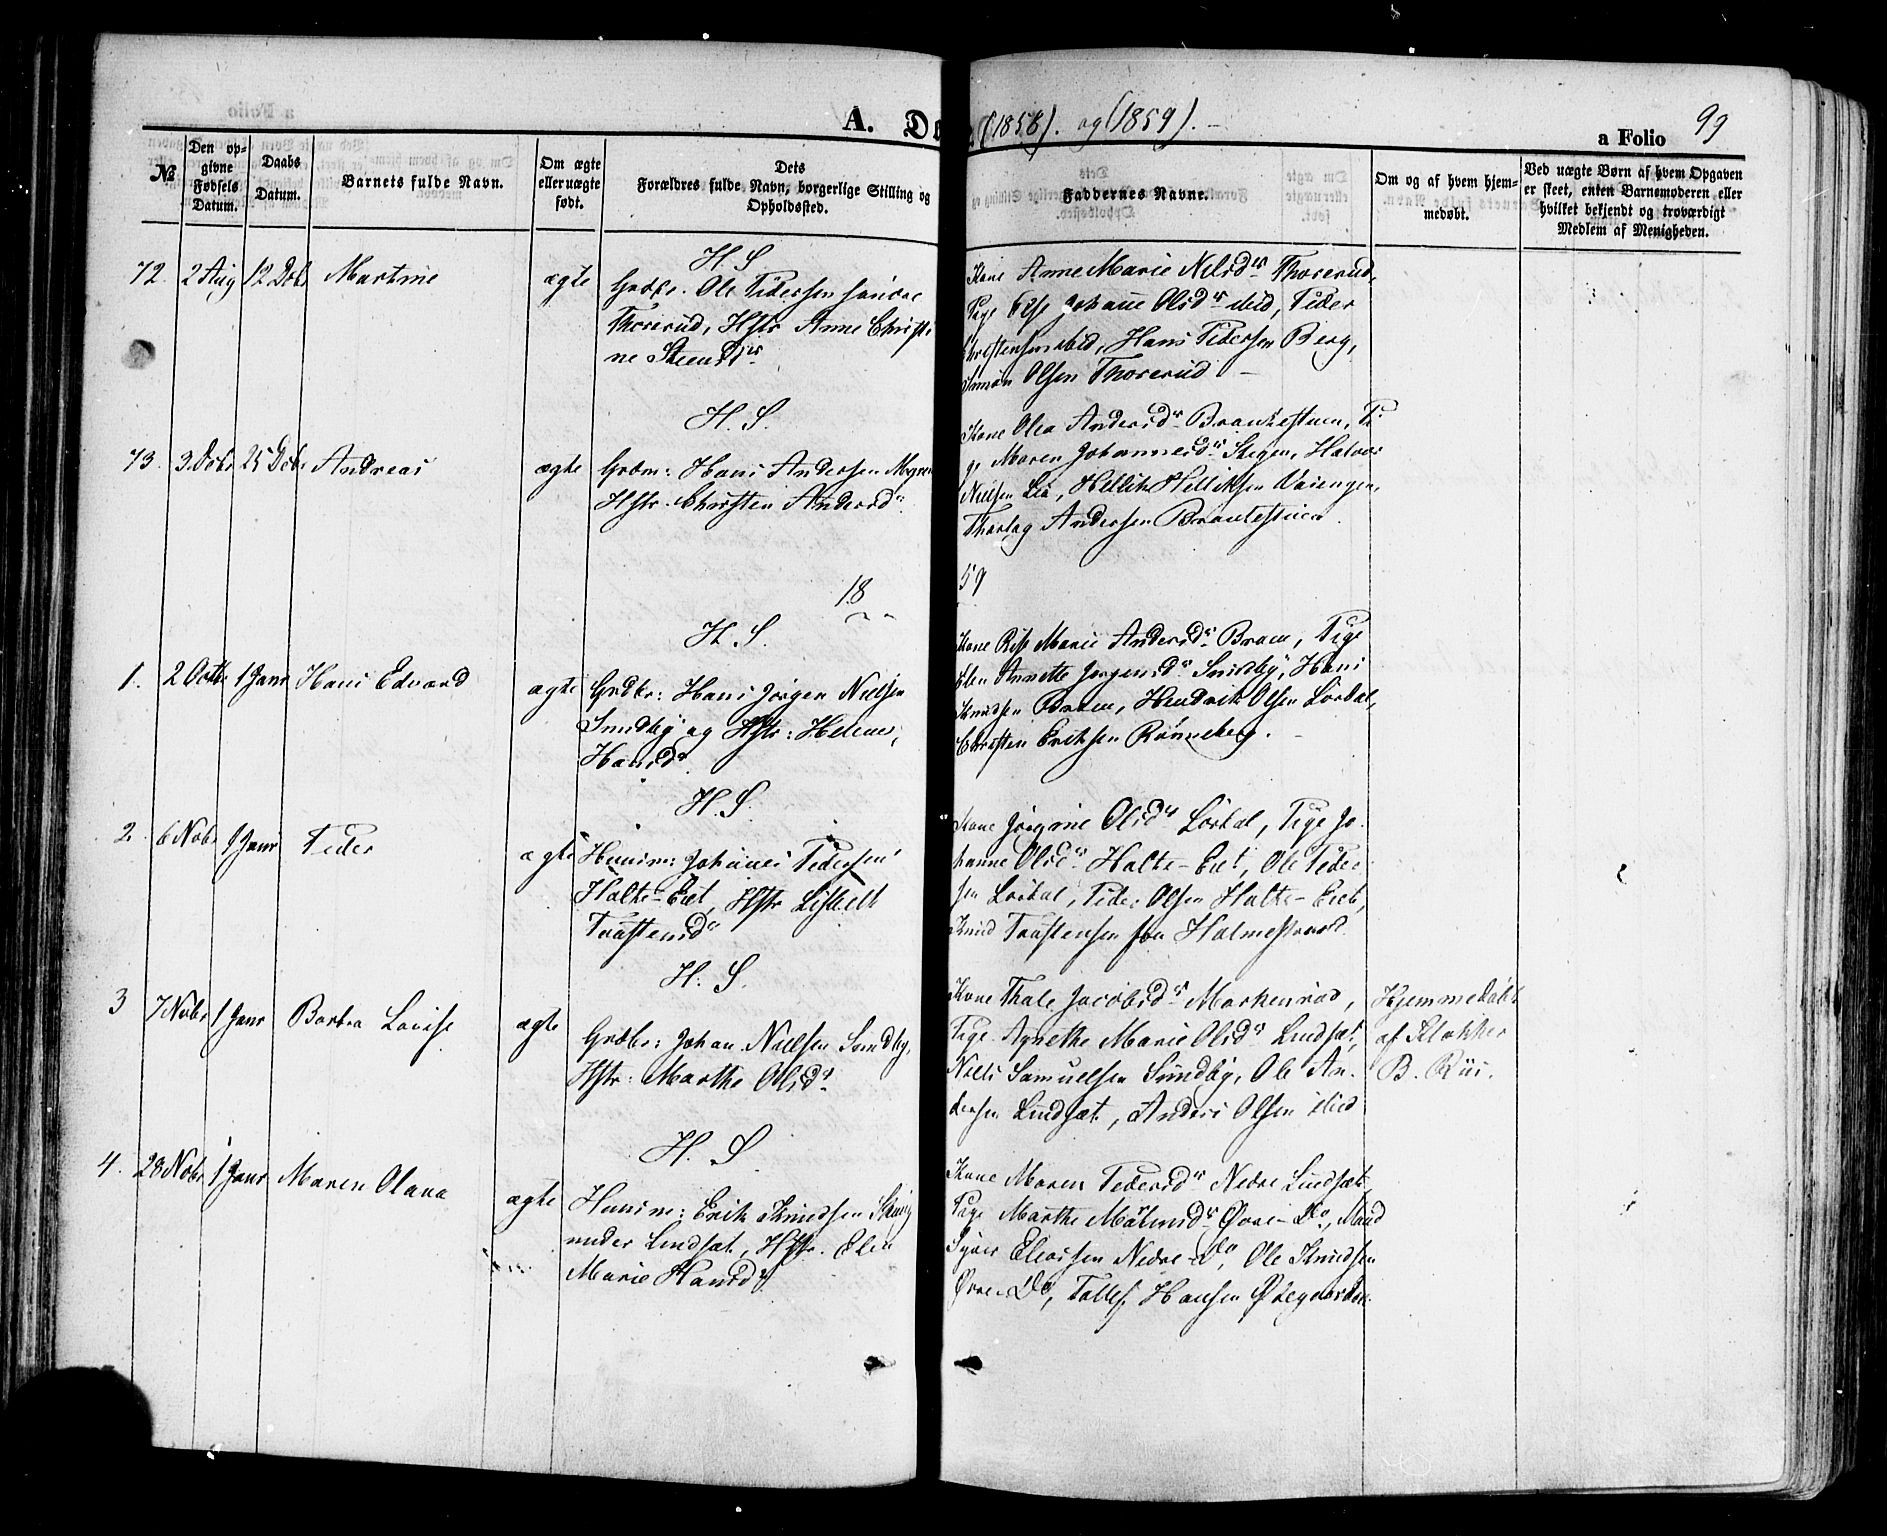 A. D (1858). og (1859). –
a Folio 99
№
Den op-
givne
Fødsels
Datum.
Daabs
Datum.
Barnets fulde Navn.
Om ægte
eller uægte
født.
Dets
Forældres fulde Navn, borgerlige Stilling og
Opholdssted.
Faddernes Navne.
Om og af hvem hjem-
medøbt.
Ved uægte Børn af hvem Opgaven
er skeet, enten Barnemoderen eller
hvilket bekjendt og troværdigt
Medlem af Menigheden.
H. S
72. 2 Aug 12 Dcbr Martine ægte
Grdbr. Ole Pedersen
Thorerud, Hstr Anne Christi
ne Steensdr
Kone Anne Marie Nilsdr Thorerud,
Pige Else Johanne Olsdr ibid, Peder
Christensen ibid, Hans Pedersen Berg,
Simon Olsen Thorerud –
H. S.
73. 3 Dcbr 25 Dcbr Andreas ægte
Grdm: Hans Andersen
Hstr. Christen Andersdr.
Kone Olea Andersdr Brautestuen, Pi
ge Maren Johannesdr Skogen, Halvor
Nielsen Lia, Hellik Helliksen
Thorleg Andersen Brautestuen.
18 59
H. S.
1. 2 Octbr 1 Janr Hans Edvard ægte
Grdbr: Hans Jørgen Nielsen
Sundby og Hstr: Helene
Hansdr.
Kone Marie Andersdr Braue, Pige
Elen Annette Jørgensdr Sundby, Hans
Knudsen Braue, Hendrik Olsen Lørdal,
Christen Eriksen Rønneberg. –
H. S.
2. 6 Nobr 1 Janr Peder ægte
Husm: Johanes Pedersen
Holte-Eiet, Hstr Lisbeth
Taastensdr
Kone Jørgine Olsdr Lørdal, Pige Jo-
hanne Olsdr Holte-Eiet, Ole Peder-
sen Lørdal, Peder Olsen Holte-Eiet,
Knud Taastensen fra Holmestrand.
H. S.
3 7 Nobr 1 Janr Barbra Lovise ægte
Grdbr: Johan Nielsen Sundby,
Hstr: Marthe Olsdr
Kone Thale Jacobsdr Markerud,
Pige Agnethe Marie Olsdr Lindsæt,
Niels Samuelsen Sundby, Ole An-
dersen Lindsæt, Anders Olsen ibid
Hjemmedøbt
af Klokker
B. Riis.
H. S
4. 28 Nobr 1 Janr Maren Olava ægte
Husm: Erik Knudsen
under Lindsæt, Hstr. Elen
Marie Hansdr
Kone Maren Pedersdr Nedre Lindsæt
Pige Marthe Øvre-Do,
Syver Eliassen Nedre-do, Ole Knudsen
Øvre-Do, Tollef Hansen Ødegaarden.